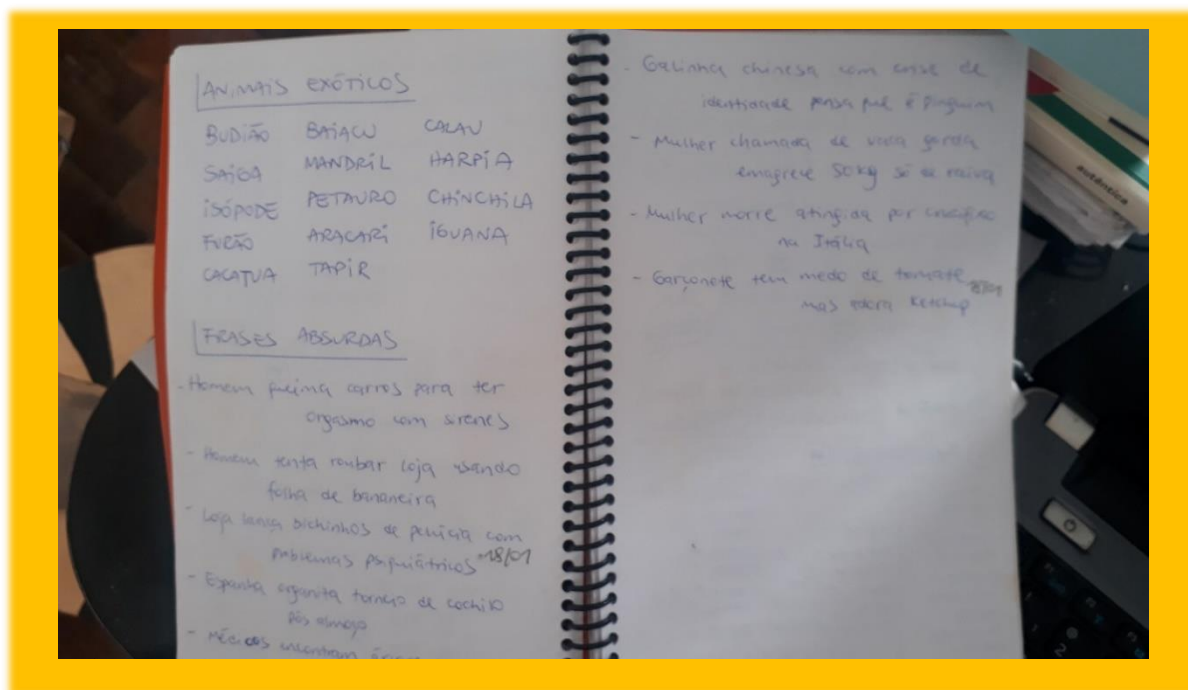 ANIMAIS EXÓTICOS
BUDIÃO BAIACU CALAU
SAIGA MANDRIL HARPIA
ISÓPODE PETAURO CHINCHILA
FURÃO ARAÇARI IGUANA
CACATUA TAPIR
FRASES ABSURDAS
- Homem queima carros para ter
orgasmo com sirenes
- Homem tenta roubar loja usando
folha de bananeira
- Loja lança bichinhos de pelúcia com
problemas psiquiátricos 18/01
- Espanha organiza torneio de cochilo
pós almoço
- Médicos encontram
- Galinha chinesa com crise de
identidade pensa que é pinguim
- Mulher chamada de vaca gorda
emagrece 50kg só de raiva
- Mulher morre atingida por crucifixo
na Itália
- Garçonete tem medo de tomate
mas adora Ketchup
autêntica